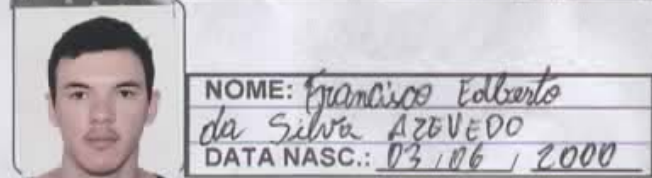 NOME: Francisco Edberto
da Silva AZEVEDO
DATA NASC.: 03 / 06 / 2000